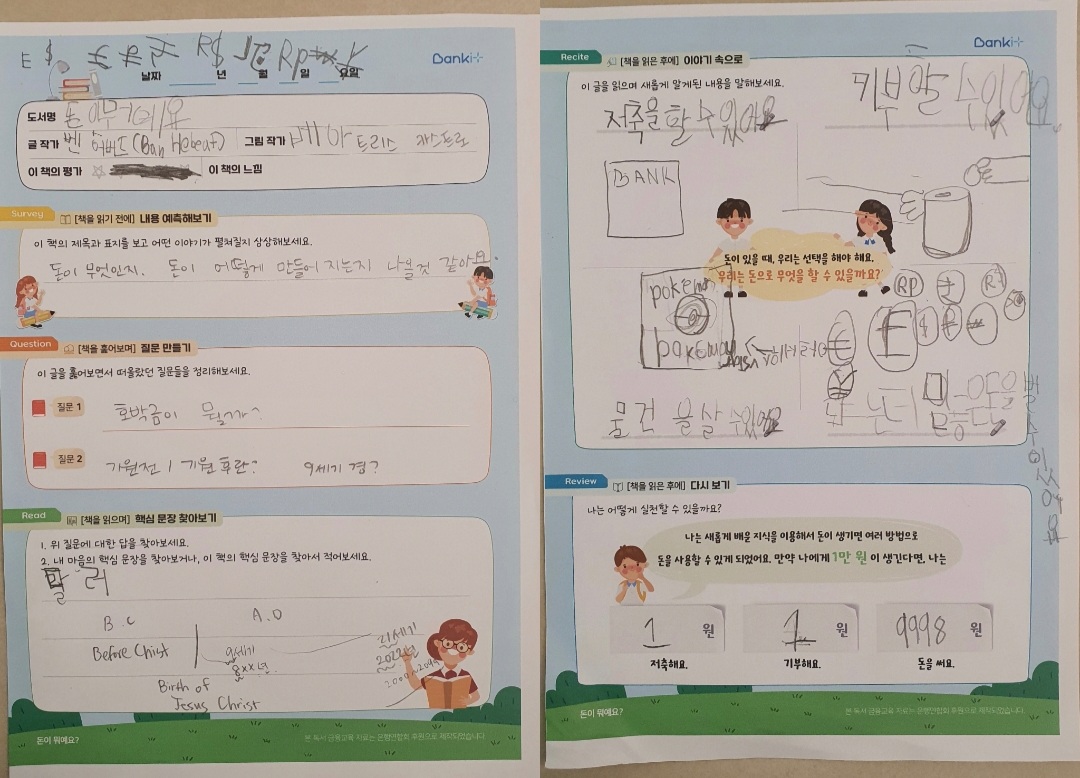 E $ € R$ Rp
Banki
날짜 년 월 일 요일
도서명 돈이 뭐예요
글 작가 벤 허버드 (Ban Hebeat) 그림 작가 베아트리스 캐스트로
이 책의 평가 이 책의 느낌
Survey [책을 읽기 전에] 내용 예측해보기
이 책의 제목과 표지를 보고 어떤 이야기가 펼쳐질지 상상해보세요.
돈이 무엇인지. 돈이 어떻게 만들어 지는지 나올것 같아요.
Question [책을 훑어보며] 질문 만들기
이 글을 훑어보면서 떠올랐던 질문들을 정리해보세요.
질문 1 호박금이 뭘까?
질문 2 기원전 / 기원 후란? 9세기 경?
Read [책을 읽으며] 핵심 문장 찾아보기
1. 위 질문에 대한 답을 찾아보세요.
2. 내 마음의 핵심 문장을 찾아보거나, 이 책의 핵심 문장을 찾아서 적어보세요.
B.C A.D
Before Christ 9세기 8××년
21세기
2022년
2000~2099
Birth of
Jesus Christ
돈이 뭐예요?
본 독서 금융교육 자료는 은행연합회 후원으로 제작되었습니다.
Banki
Recite [책을 읽은 후에] 이야기 속으로
이 글을 읽으며 새롭게 알게된 내용을 말해보세요.
저축을 할 수 있어요
기부할 수 있어요
BANK
돈이 있을 때, 우리는 선택을 해야 해요.
우리는 돈으로 무엇을 할 수 있을까요?
pokemon
pokemon
RP
물건을 살 수 있어요
Review [책을 읽은 후에] 다시 보기
나는 어떻게 실천할 수 있을까요?
나는 새롭게 배운 지식을 이용해서 돈이 생기면 여러 방법으로
돈을 사용할 수 있게 되었어요. 만약 나에게 1만 원이 생긴다면, 나는
1 원 1 원 9998 원
저축해요. 기부해요. 돈을 써요.
돈이 뭐예요?
본 독서 금융교육 자료는 은행연합회 후원으로 제작되었습니다.